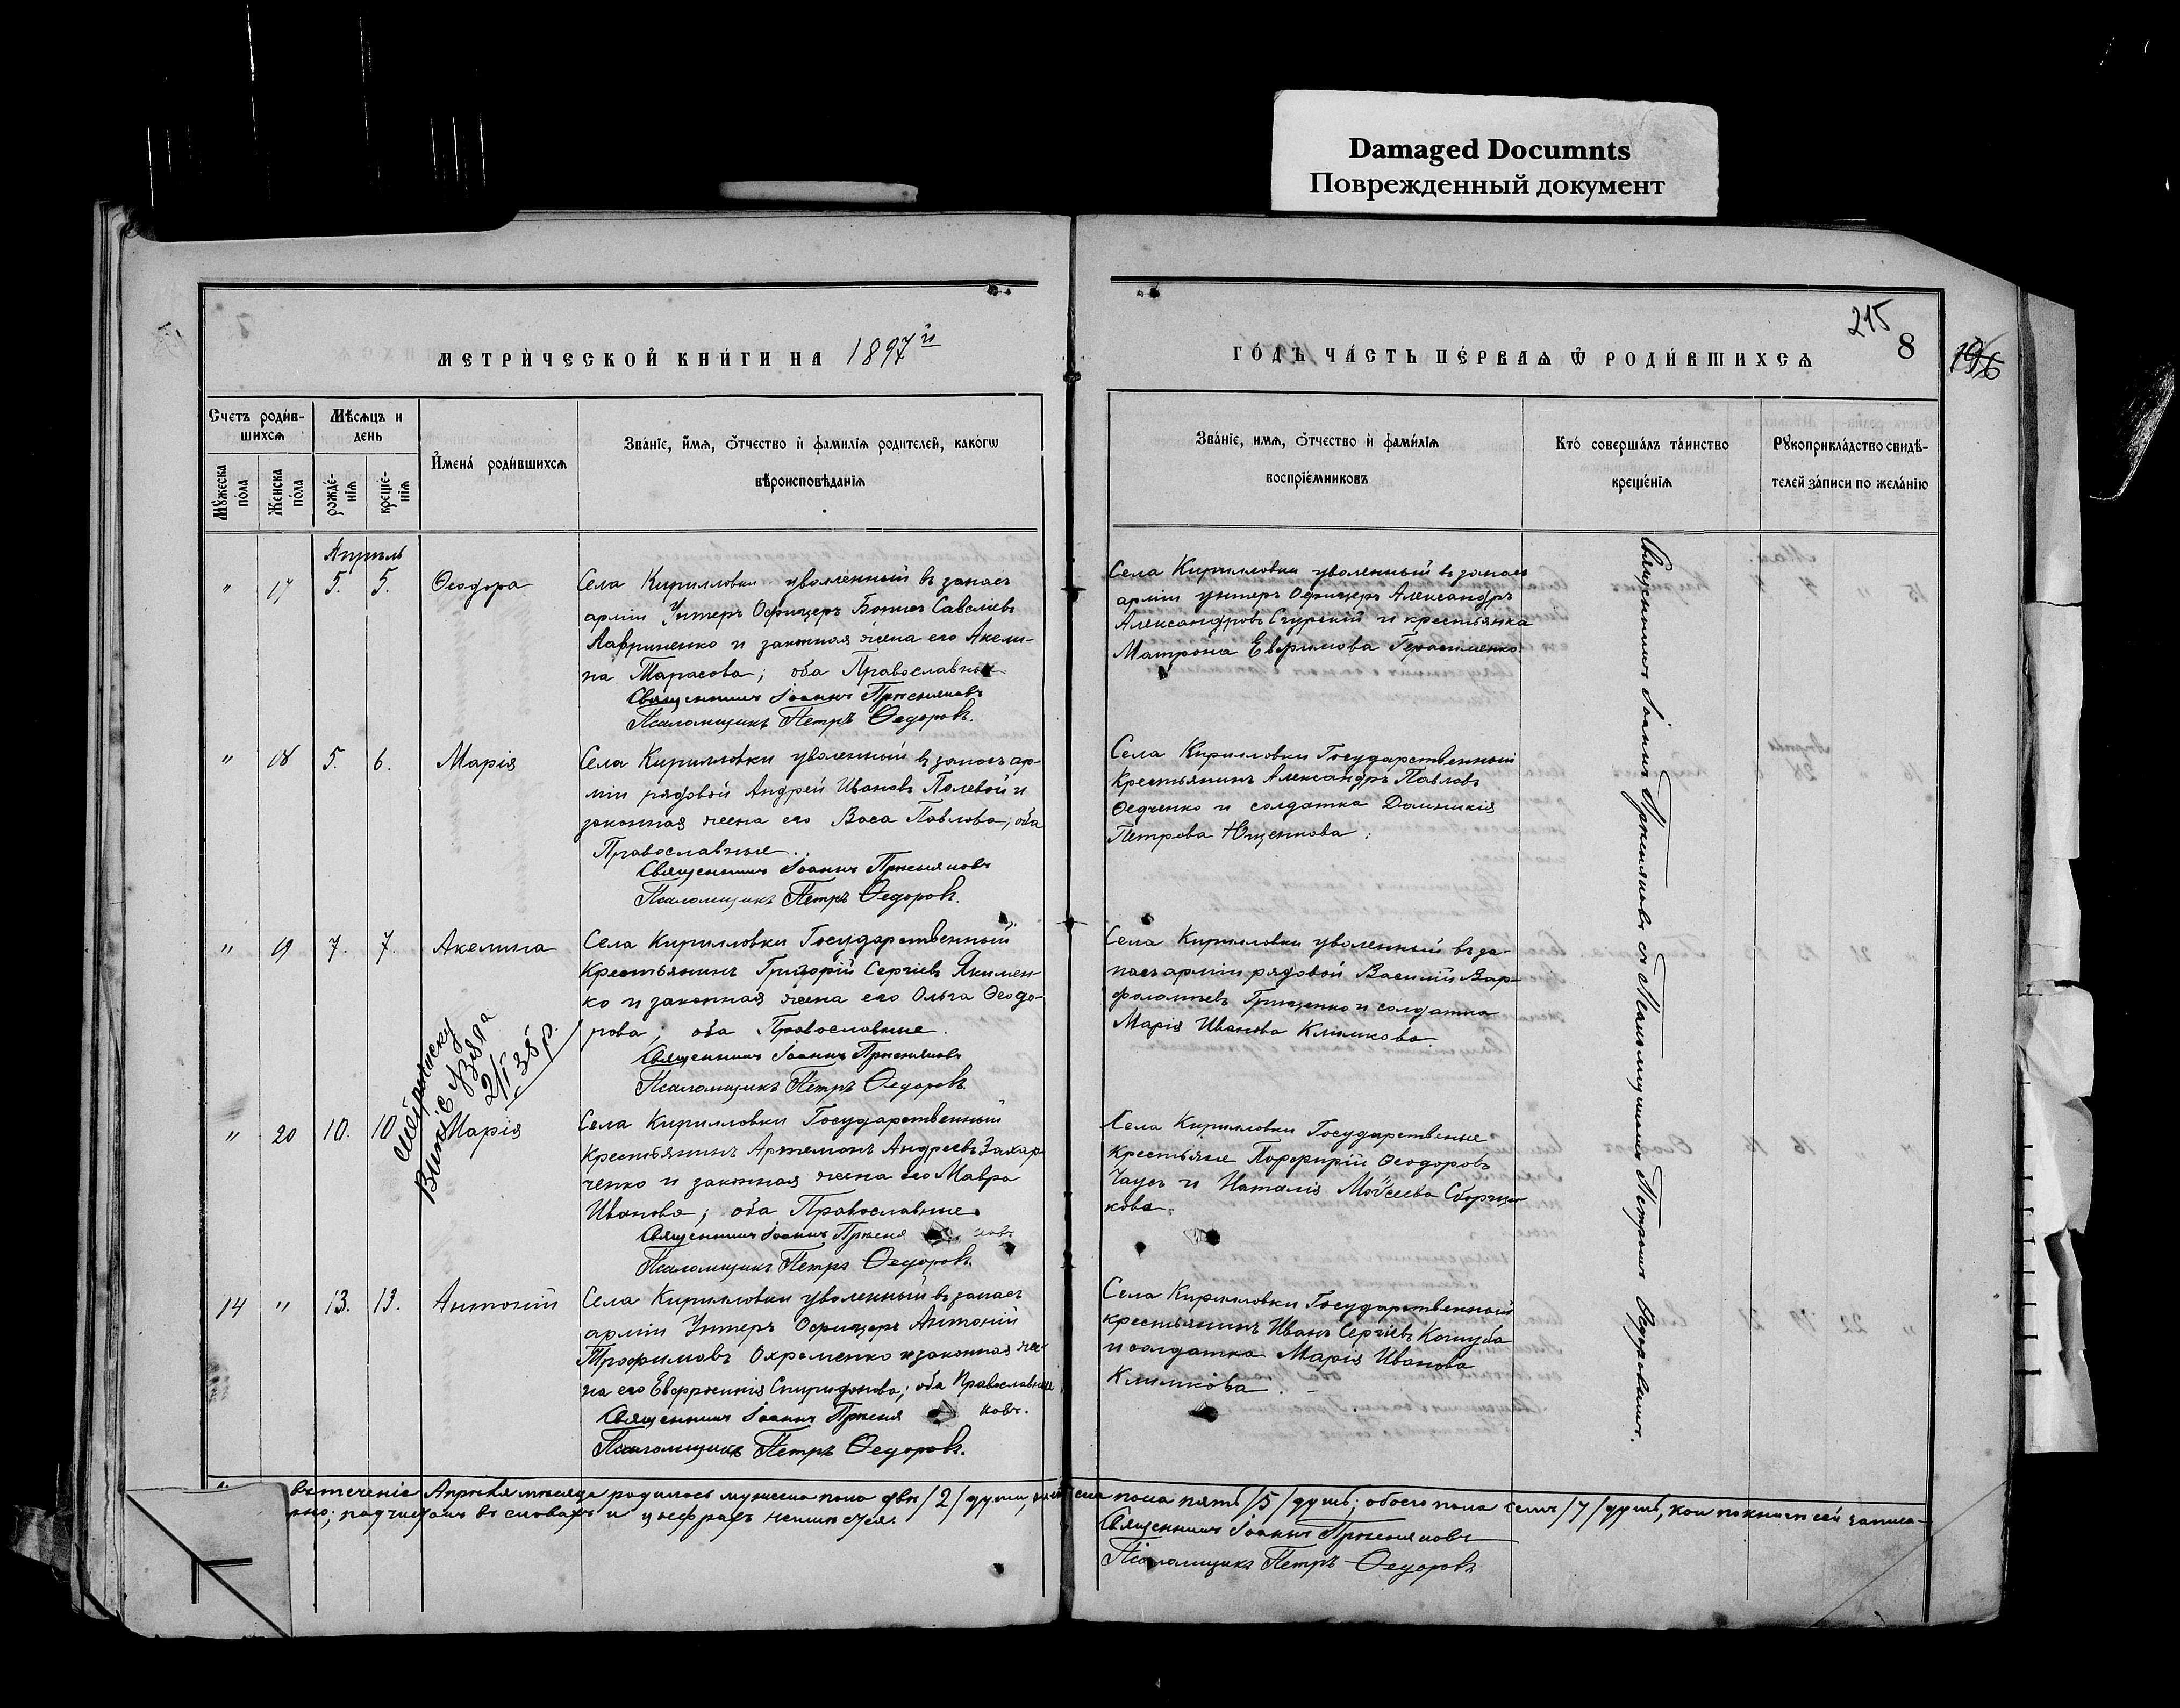 Damaged Documnts
Поврежденный документ
215
8
196
МЕТРИЧЕСКОЙ КНИГИ НА 1897й
ГОДЪ ЧАСТЬ ПЕРВАЯ Ѿ РОДИВШИХСЯ
Счетъ родив-
шихся
Мѣсяцъ и
день
Мужеска
пола
Женска
пола
рожде-
нія
креще-
нія
Имена родившихся
Званіе, имя, отчество и фамилія родителей, какогѡ
вѣроисповѣданія
Званіе, имя, отчество и фамилія
воспріемниковъ
Кто совершалъ таинство
крещенія
Рукоприкладство свидѣ-
телей записи по желанію
Апрѣль
" 17 5. 5. Ѳеодора
Села Кирилловки уволенный въ запасъ
арміи Унтеръ Офицеръ Савеліевъ
Лавриненко и законная жена его Акели-
на Тарасова; оба Православные
Священникъ Іоаннъ
Псаломщикъ Петръ Ѳедоровъ.
Села Кирилловки уволенный въ запасъ
арміи унтеръ Офицеръ Александръ
Александровъ Сгурскій и крестьянка
Матрона Евфимова Герасименко.
" 18 5. 6. Марія
Села Кирилловки уволенный въ запасъ ар-
міи рядовой Андрей Ивановъ Полевой и
законная жена его Васа Павлова; оба
Православные.
Священникъ Іоаннъ
Псаломщикъ Петръ Ѳедоровъ.
Села Кирилловки Государственный
Крестьянинъ Александръ Павловъ
Ѳедченко и солдатка Домникія
Петрова Ющенкова.
" 19 7. 7. Акелина
Села Кирилловки Государственный
Крестьянинъ Григорій Сергіевъ Якимен-
ко и законная жена его Ольга Ѳеодо-
рова; оба Православные.
Священникъ Іоаннъ
Псаломщикъ Петръ Ѳедоровъ.
Села Кирилловки уволенный въ за-
пасъ арміи рядовой Василій Вар-
фоломѣевъ Грищенко и солдатка
Марія Иванова Климкова.
Витяг
2/I 38 р.
" 20 10. 10 Марія
Села Кирилловки Государственный
Крестьянинъ Артемонъ Андреевъ Захар-
ченко и законная жена его Мавра
Иванова; оба Православные.
Священникъ Іоаннъ
Псаломщикъ Петръ Ѳедоровъ.
Села Кирилловки Государственные
Крестьяне Порфирій Ѳеодоровъ
Чаусъ и Наталія Моѵсеева Сборщи-
кова.
14 " 13. 13. Антоній
Села Кирилловки уволенный въ запасъ
арміи Унтеръ Офицеръ Антоній
Трофимовъ Охроменко и законная же-
на его Евфросинія Спиридонова; оба Православные
Священникъ Іоаннъ
Псаломщикъ Петръ Ѳедоровъ.
Села Кирилловки Государственный
крестьянинъ Иванъ Сергіевъ Кошуба
и солдатка Марія Иванова
Климкова.
Священникъ Іоаннъ съ Псаломщикомъ Петромъ Ѳедоровымъ.
въ теченіе Апрѣля мѣсяца родилось мужеска пола двѣ /2/ души, женска пола пять /5/ душъ; обоего пола семь /7/ душъ, кои по книгѣ сей записа-
но; подчистокъ въ словахъ и цыфрахъ не имѣется.
Священникъ Іоаннъ
Псаломщикъ Петръ Ѳедоровъ